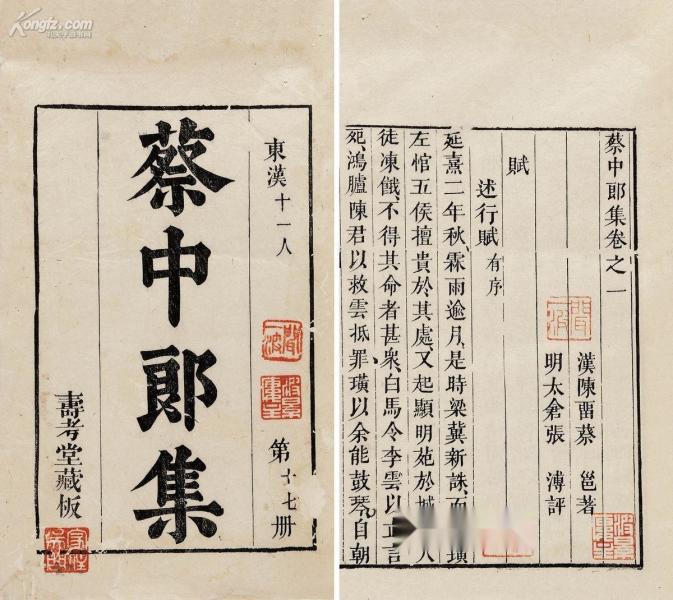 Kongfz.com
孔夫子旧书网
東漢十一人
第十七册
蔡中郎集
壽考堂藏板
蔡中郎集卷之一
漢陳畱蔡 邕著
明太倉張 溥評
賦
述行賦 有序
延熹二年秋、霖雨逾月、是時梁冀新誅、而 璜
左悺五侯擅貴於其處、又起顯明苑於城 人
徒凍餓、不得其命者甚衆、白馬令李雲以直言
死、鴻臚陳君以救雲抵罪、璜以余能鼓琴、自朝